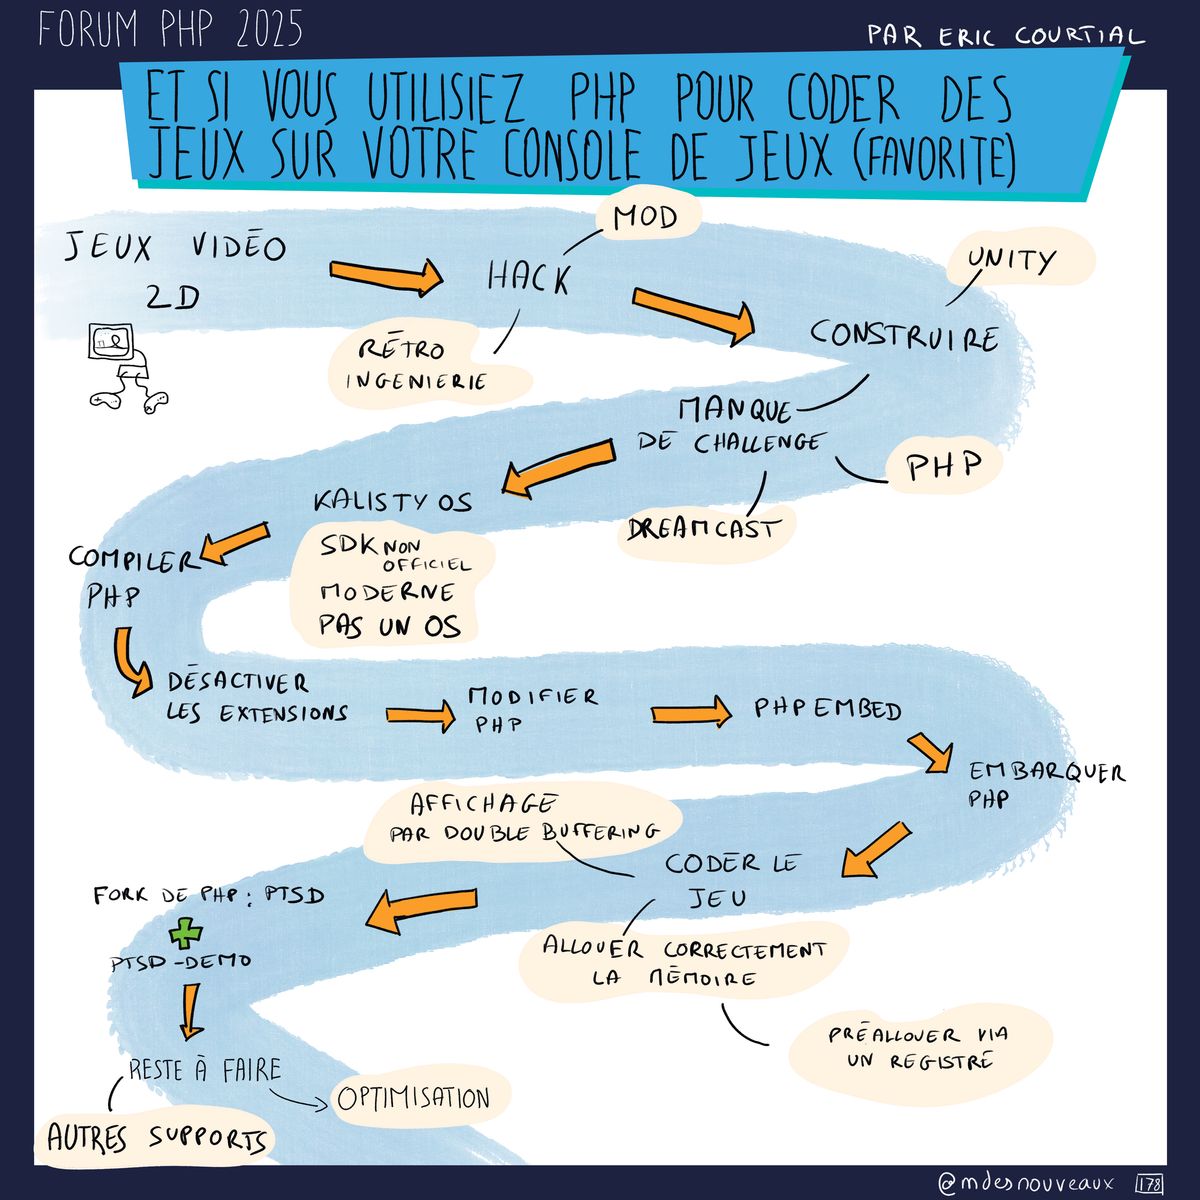 FORUM PHP 2025
PAR ERIC COURTIAL
ET SI VOUS UTILISIEZ PHP POUR CODER DES
JEUX SUR VOTRE CONSOLE DE JEUX (FAVORITE)
JEUX VIDÉO
2D
HACK
MOD
RÉTRO
INGENIERIE
UNITY
CONSTRUIRE
MANQUE
DE CHALLENGE
PHP
DREAMCAST
KALISTY OS
SDK NON
OFFICIEL
MODERNE
PAS UN OS
COMPILER
PHP
DÉSACTIVER
LES EXTENSIONS
MODIFIER
PHP
PHP EMBED
EMBARQUER
PHP
AFFICHAGE
PAR DOUBLE BUFFERING
CODER LE
JEU
ALLOUER CORRECTEMENT
LA MÉMOIRE
PRÉALLOUER VIA
UN REGISTRE
FORK DE PHP : PTSD
PTSD-DEMO
RESTE À FAIRE
OPTIMISATION
AUTRES SUPPORTS
@mdesnouveaux 178